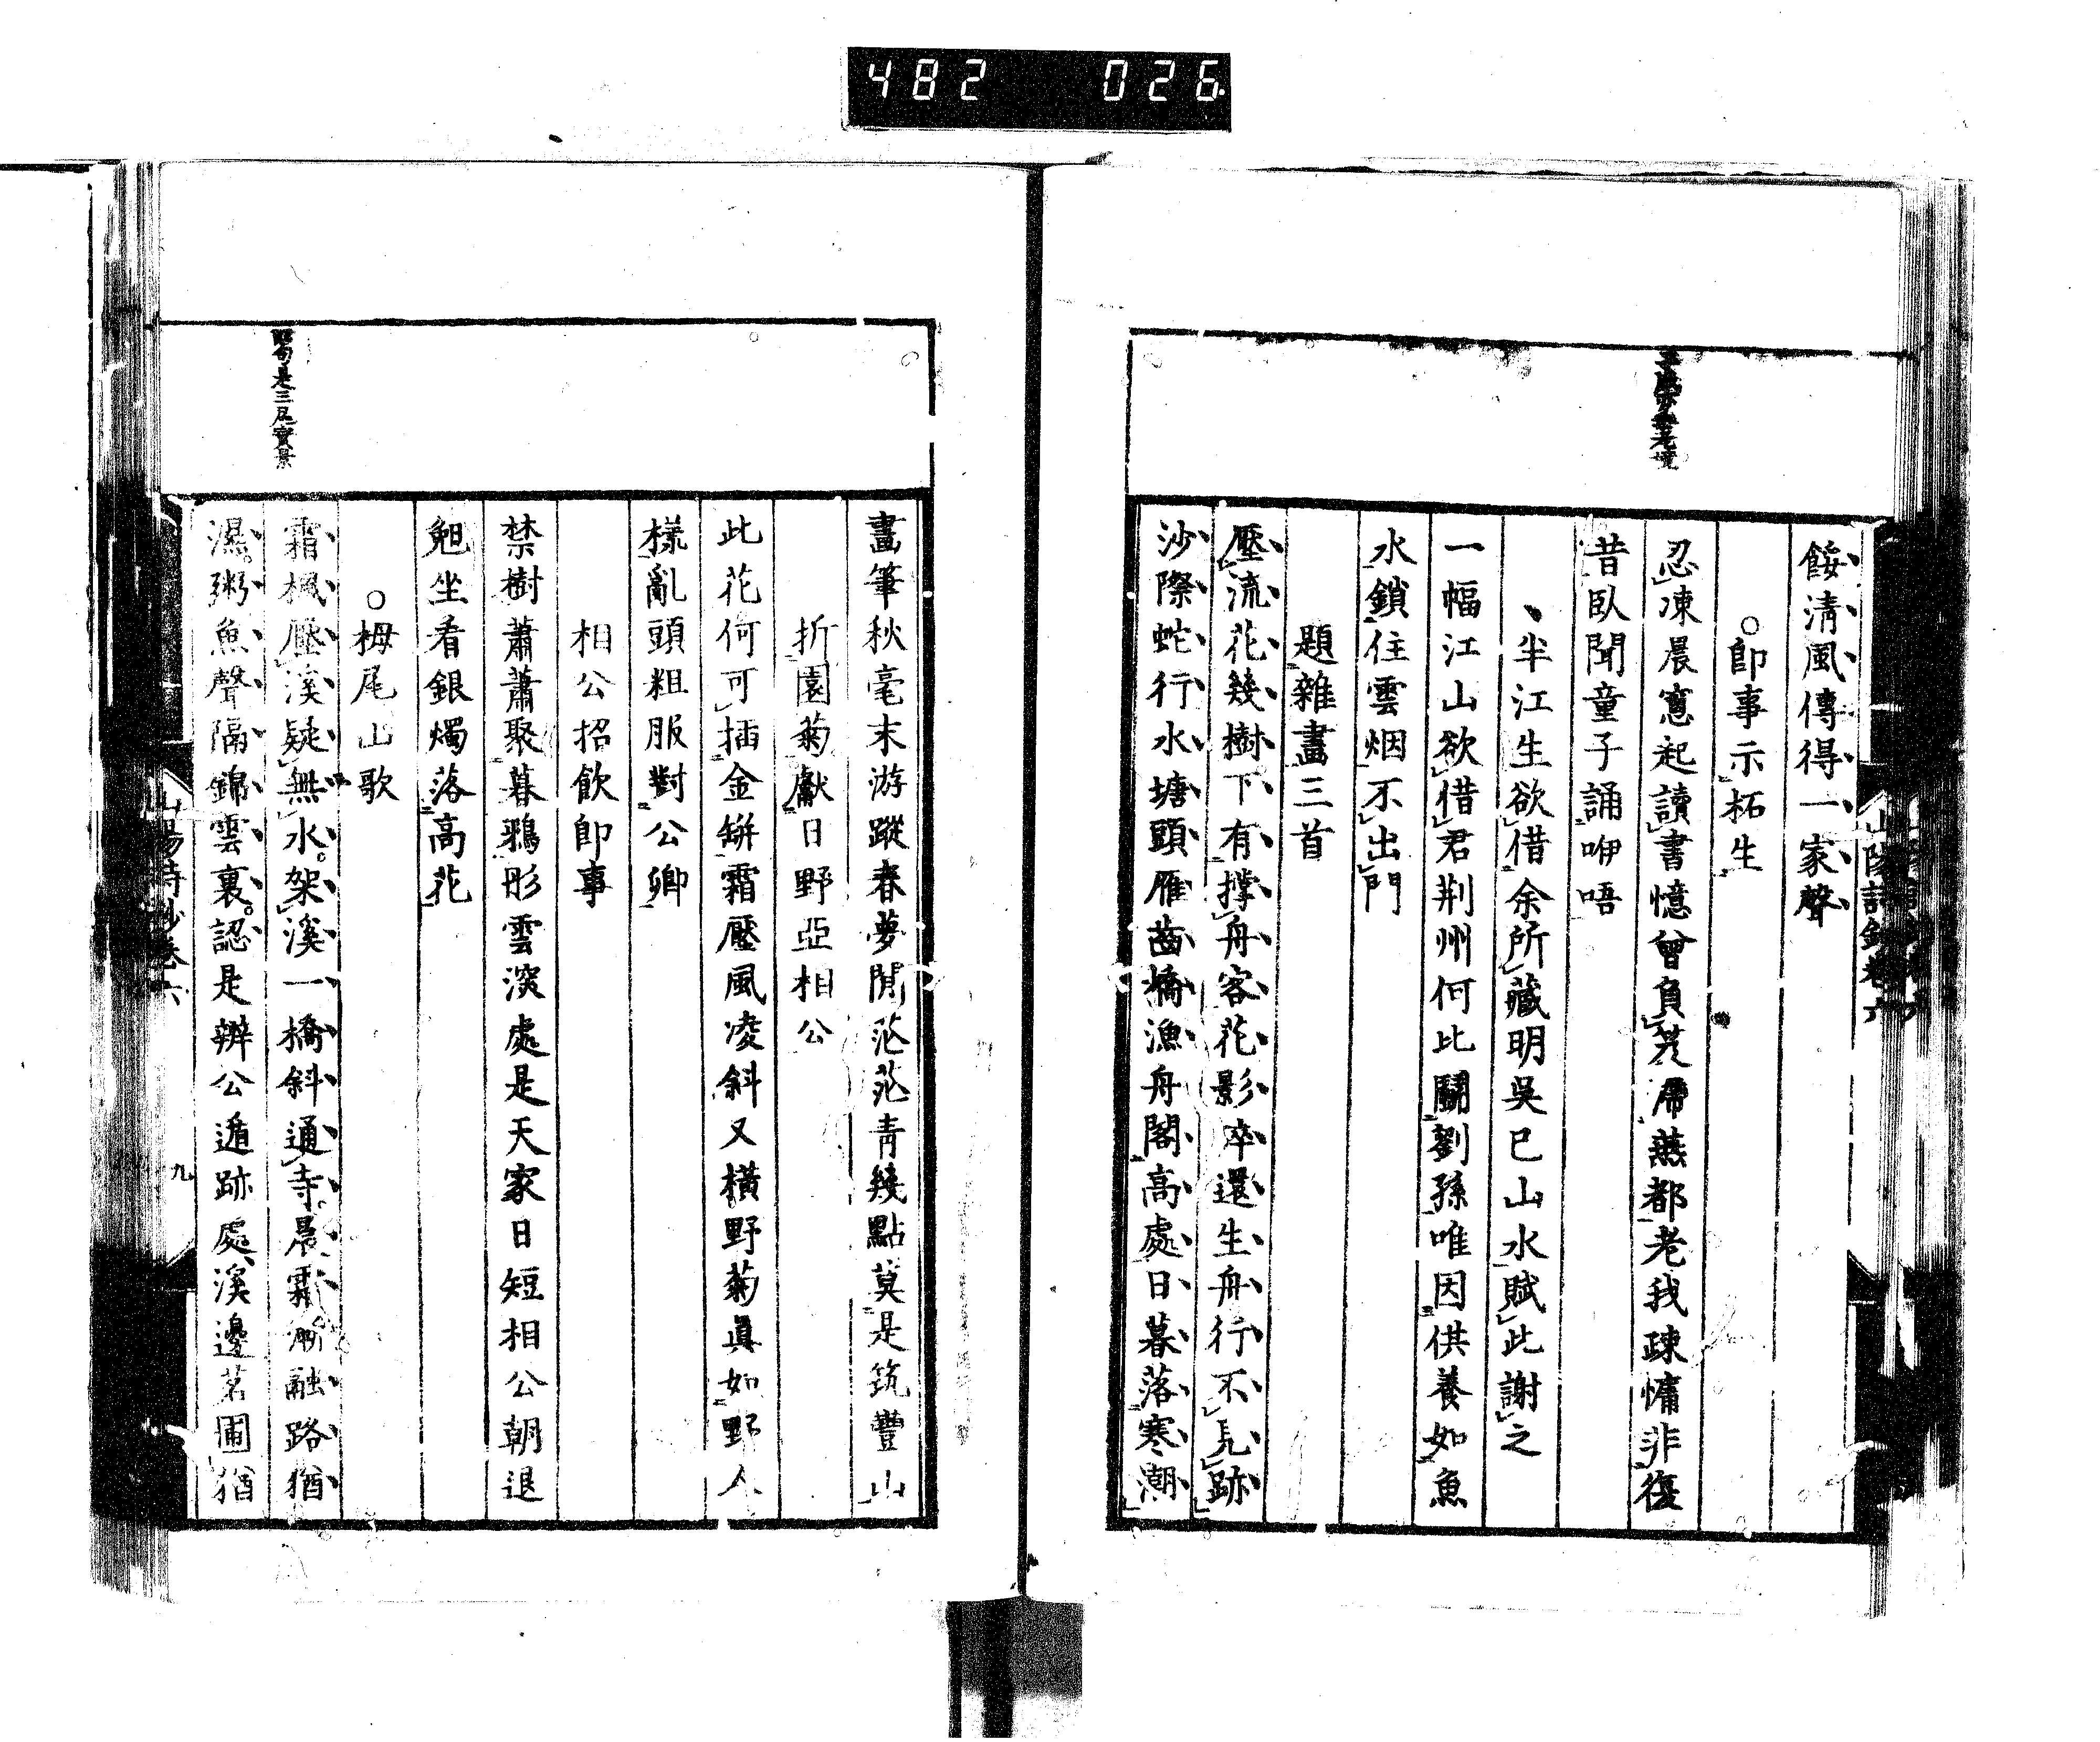 482 026
餒清風傳得一家聲
○卽事示柘生
忍凍晨窻起讀書憶曾負笈滯燕都老我疎慵非復
昔臥聞童子誦咿唔
半江生欲借余所藏明吳巳山水賦此謝之
一幅江山欲借君荊州何比鬪劉孫唯因供養如魚
水鎖住雲烟不出門
題雜畫三首
壓流花幾樹下有撑舟客花影碎還生舟行不見跡
沙際蛇行水塘頭雁齒橋漁舟閣高處日暮落寒潮
山陽詩鈔卷六
畫筆秋毫末游蹤春夢閒茫茫青幾點莫是筑豐山
折園菊獻日野亞相公
此花何可插金缾霜壓風凌斜又橫野菊眞如野人
樣亂頭粗服對公卿
相公招飮卽事
禁樹蕭蕭聚暮鴉彤雲深處是天家日短相公朝退
䠂坐看銀燭落高花
○栂尾山歌
霜楓壓溪疑無水架溪一橋斜通寺晨霜漸融路猶
濕粥魚聲隔錦雲裏認是辨公遁跡處溪邊茗圃猶
起句是三尾實景
山陽詩鈔卷六
九